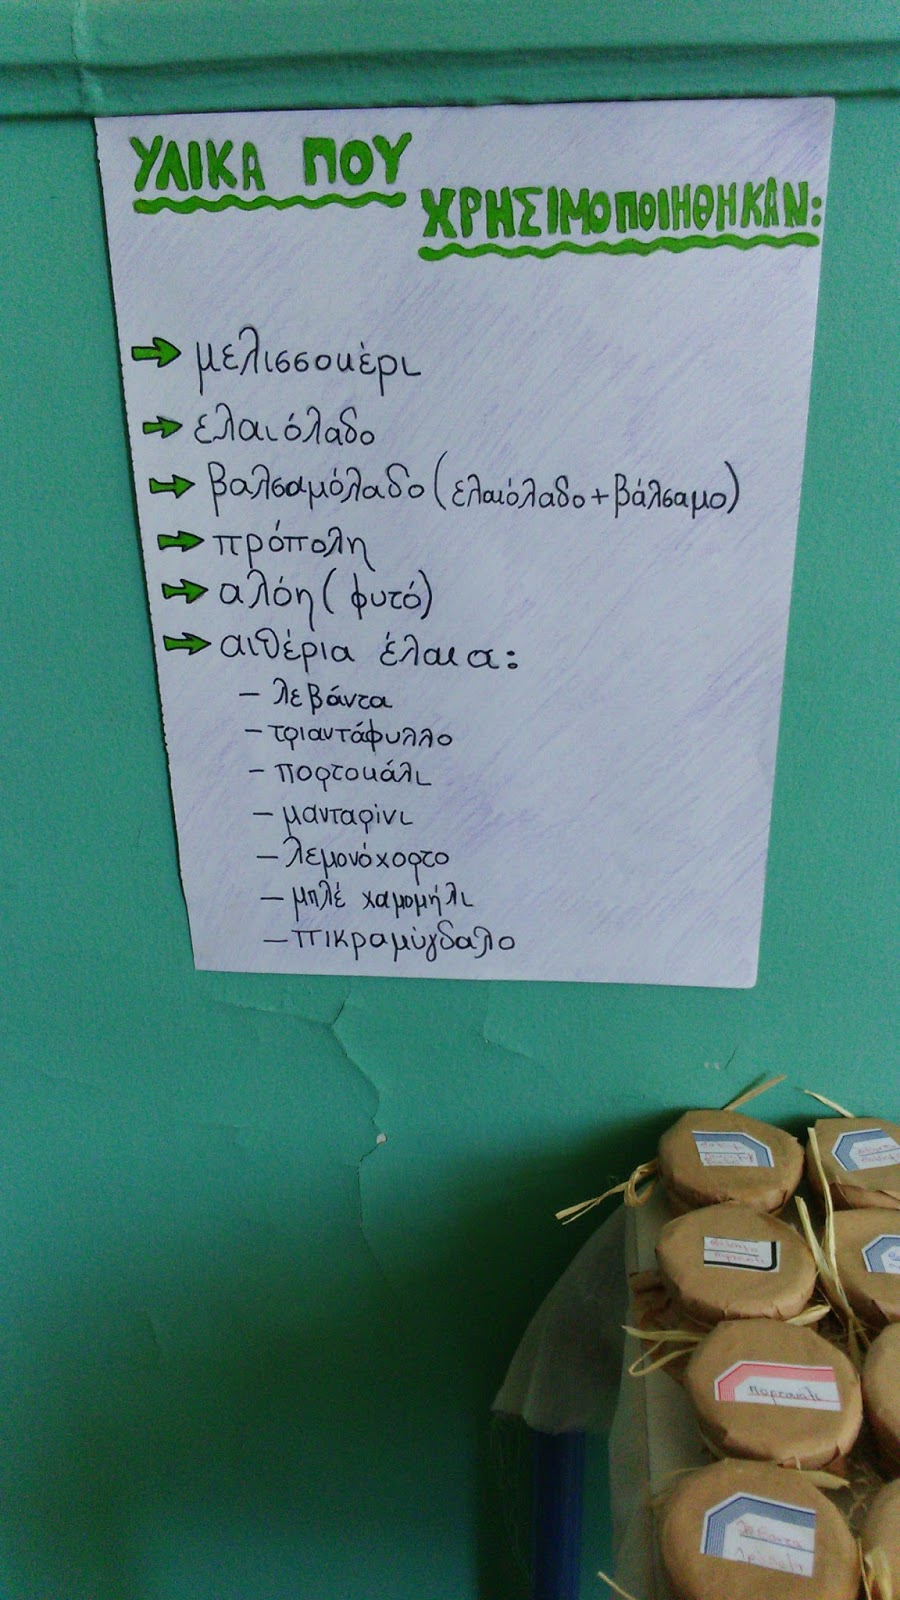 ΥΛΙΚΑ ΠΟΥ
ΧΡΗΣΙΜΟΠΟΙΗΘΗΚΑΝ:
μελισσοκέρι
ελαιόλαδο
βαλσαμόλαδο (ελαιόλαδο + βάλσαμο)
πρόπολη
αλόη (φυτό)
αιθέρια έλαια:
- λεβάντα
- τριαντάφυλλο
- πορτοκάλι
- μανταρίνι
- λεμονόχορτο
- μπλέ χαμομήλι
- πικραμύγδαλο
πορτοκάλι